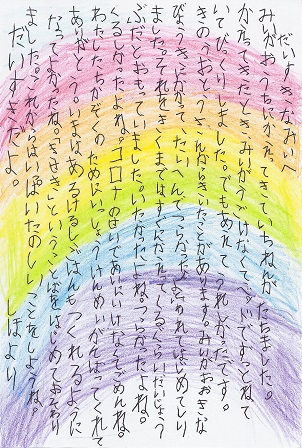 だいすきなみぃへ
みぃがおうちにかえってきていちねんがたちました。
かえってきたとき、みぃがうごけなくてベッドですっとねて
いてびっくりしました。でもあえてうれしかったです。
きのうおとうさんからきいたことがあります。みぃがおおきな
びょうきにかかって、たいへんでつらかったと言われてはじめてしり
ました。それをきくまではすぐにかえれてくるぐらいだいじょう
ぶだとおもっていました。いたかったよね。つらかったよね。
くるしかったよね。コロナのせいであいにいけなくてごめんね。
わたしたちかぞくのためにいっしょうけんめいがんばってくれて
ありがとう。いまはあるけるしごはんもつくれるように
なってよかったね。「きせき」ということばをはじめて
ました。これからはいっぱいたのしいことをしようね。
だいすきだよ。 しほより